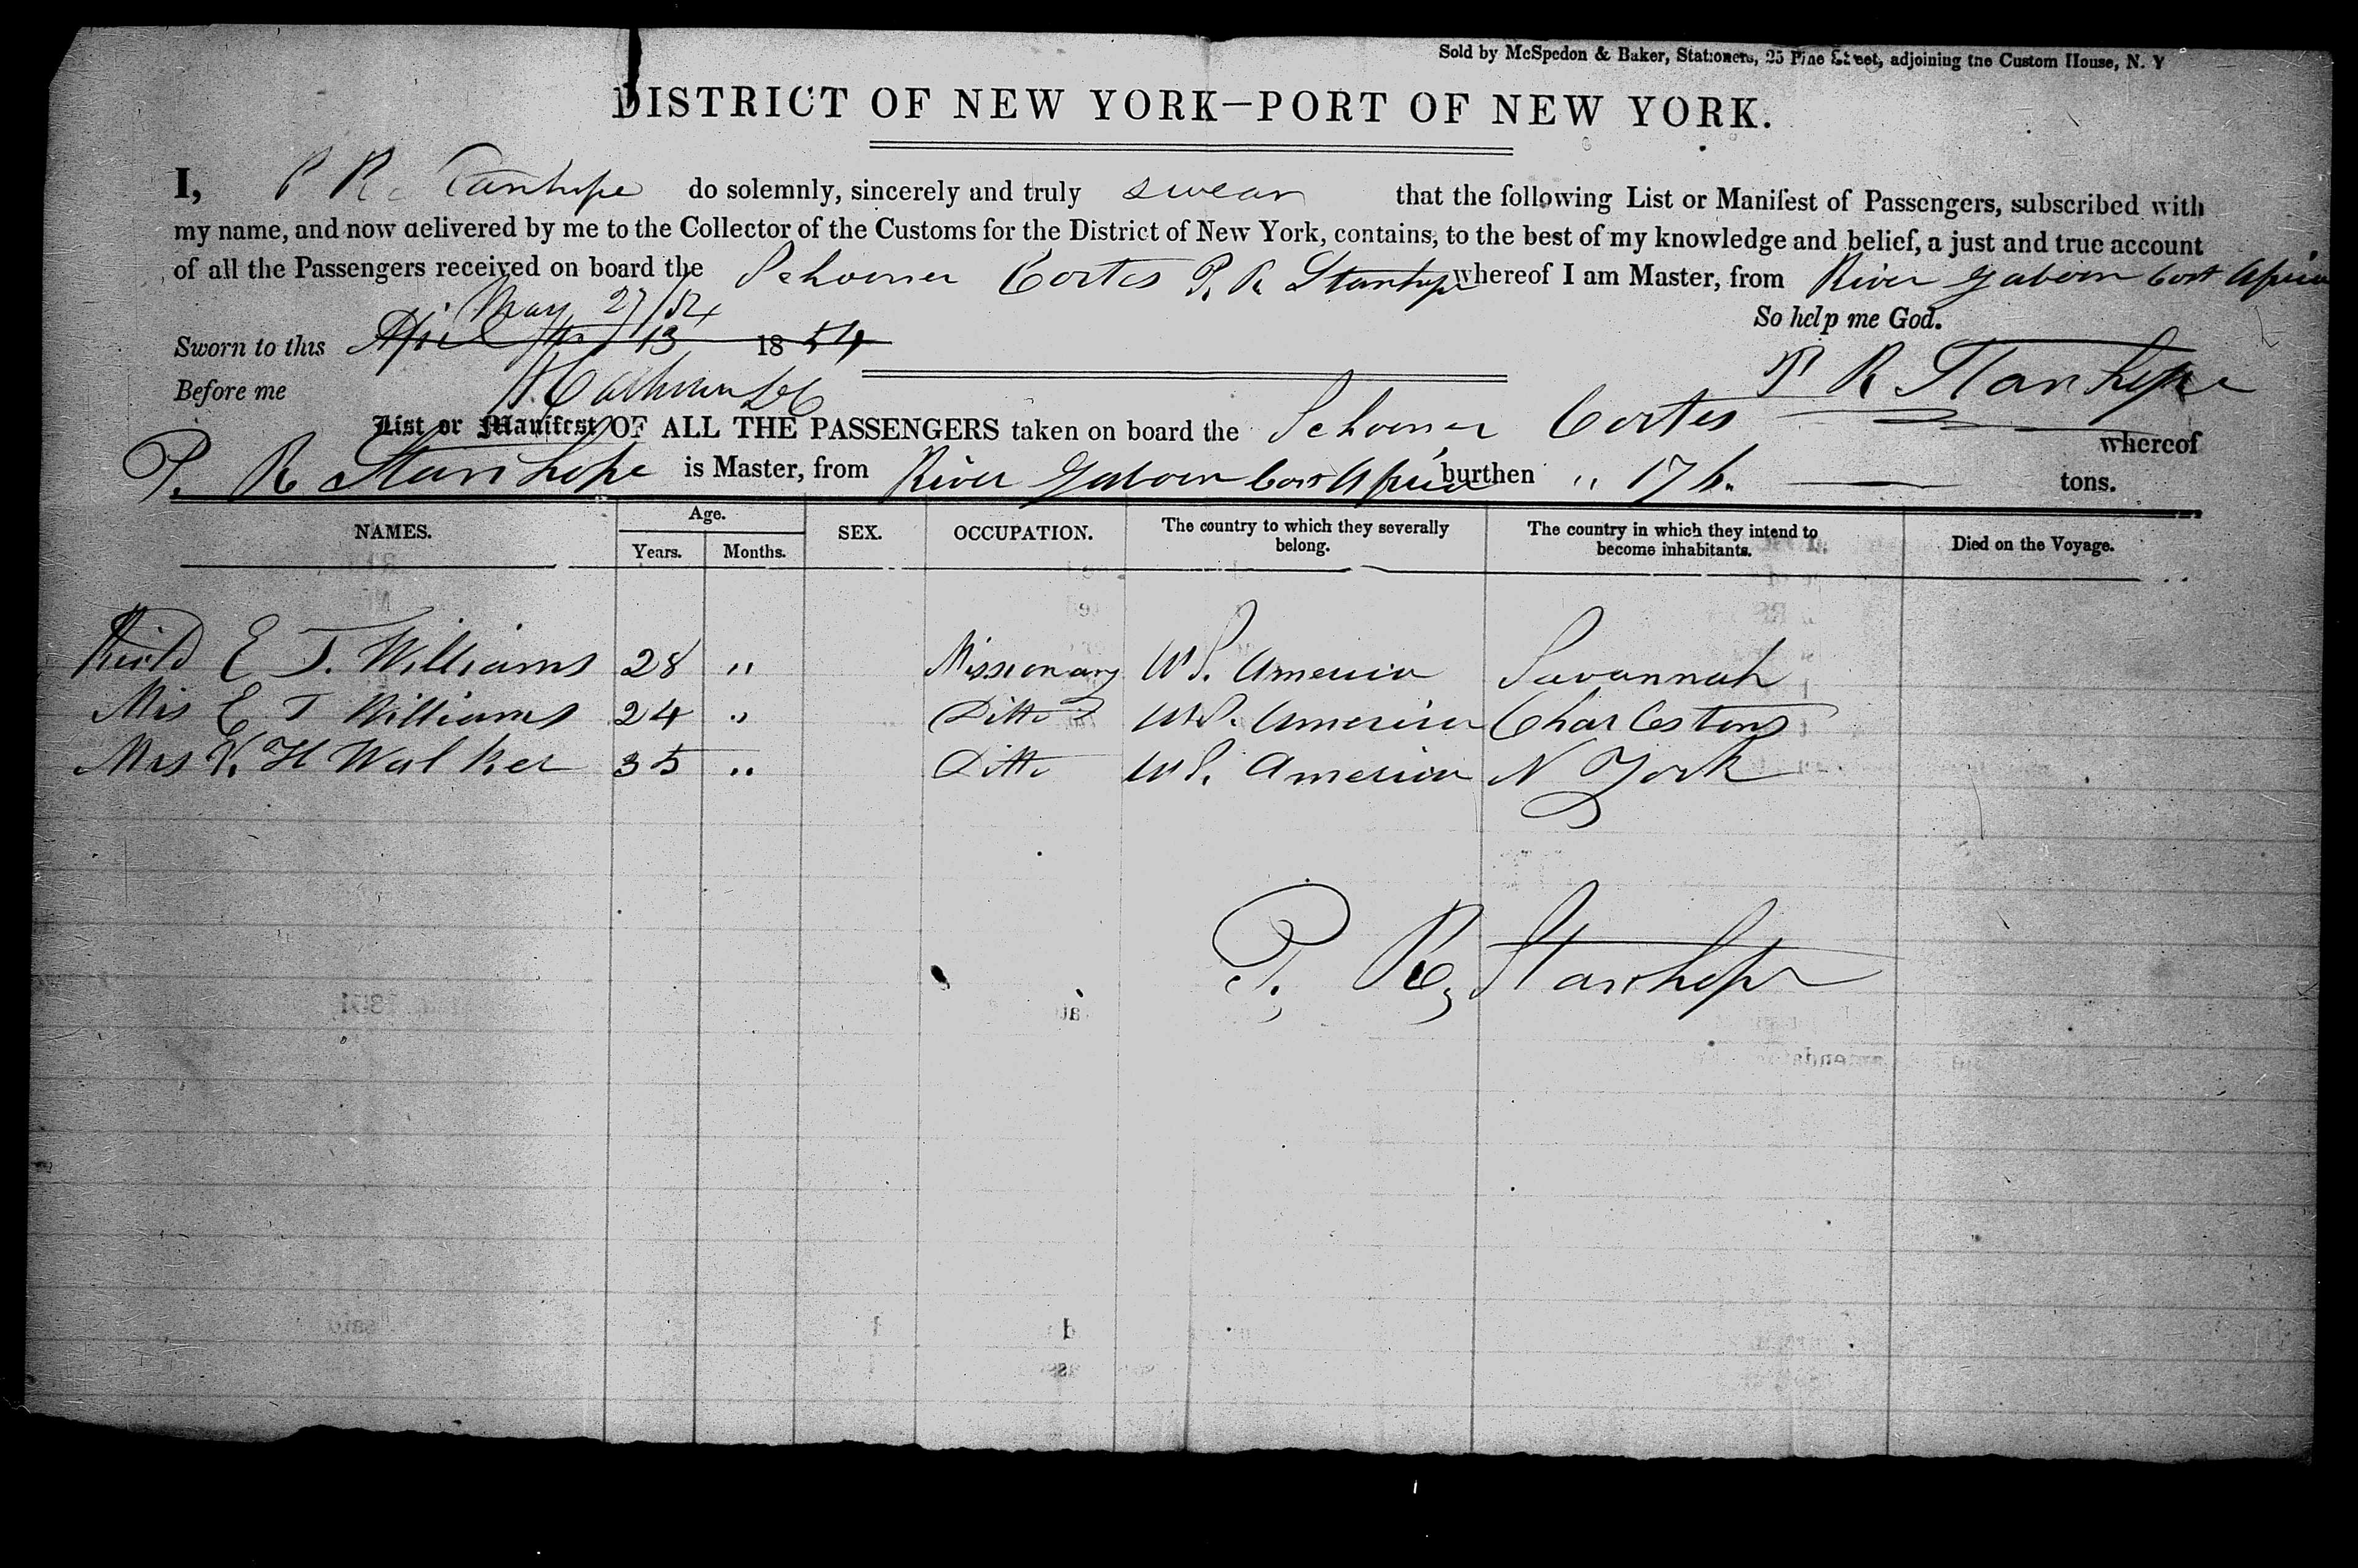 Sold by McSpedon & Baker, Stationers, 25 Pine Street, adjoining the Custom House, N. Y
DISTRICT OF NEW YORK—PORT OF NEW YORK.
I, P R Stanhope do solemnly, sincerely and truly swear that the following List or Manifest of Passengers, subscribed with
my name, and now delivered by me to the Collector of the Customs for the District of New York, contains, to the best of my knowledge and belief, a just and true account
of all the Passengers received on board the Schooner Cortes P. R Stanhope whereof I am Master, from River Gaboon Cost Africa
So help me God.
May 27/54
Sworn to this April 13 1854
P R Stanhope
Before me
List or Manifest OF ALL THE PASSENGERS taken on board the Schooner Cortes whereof
P. R Stanhope is Master, from River Gaboon Cost Africa burthen " 176. tons.
NAMES. Age. Years. Months. SEX. OCCUPATION. The country to which they severally belong. The country in which they intend to become inhabitants. Died on the Voyage.
E T. Williams 28 " Missionary US. America Savannah
Mrs E T Williams 24 " Ditto US. America Charleston
Mrs K. H Walker 35 " Ditto US. America N York
P. R Stanhope